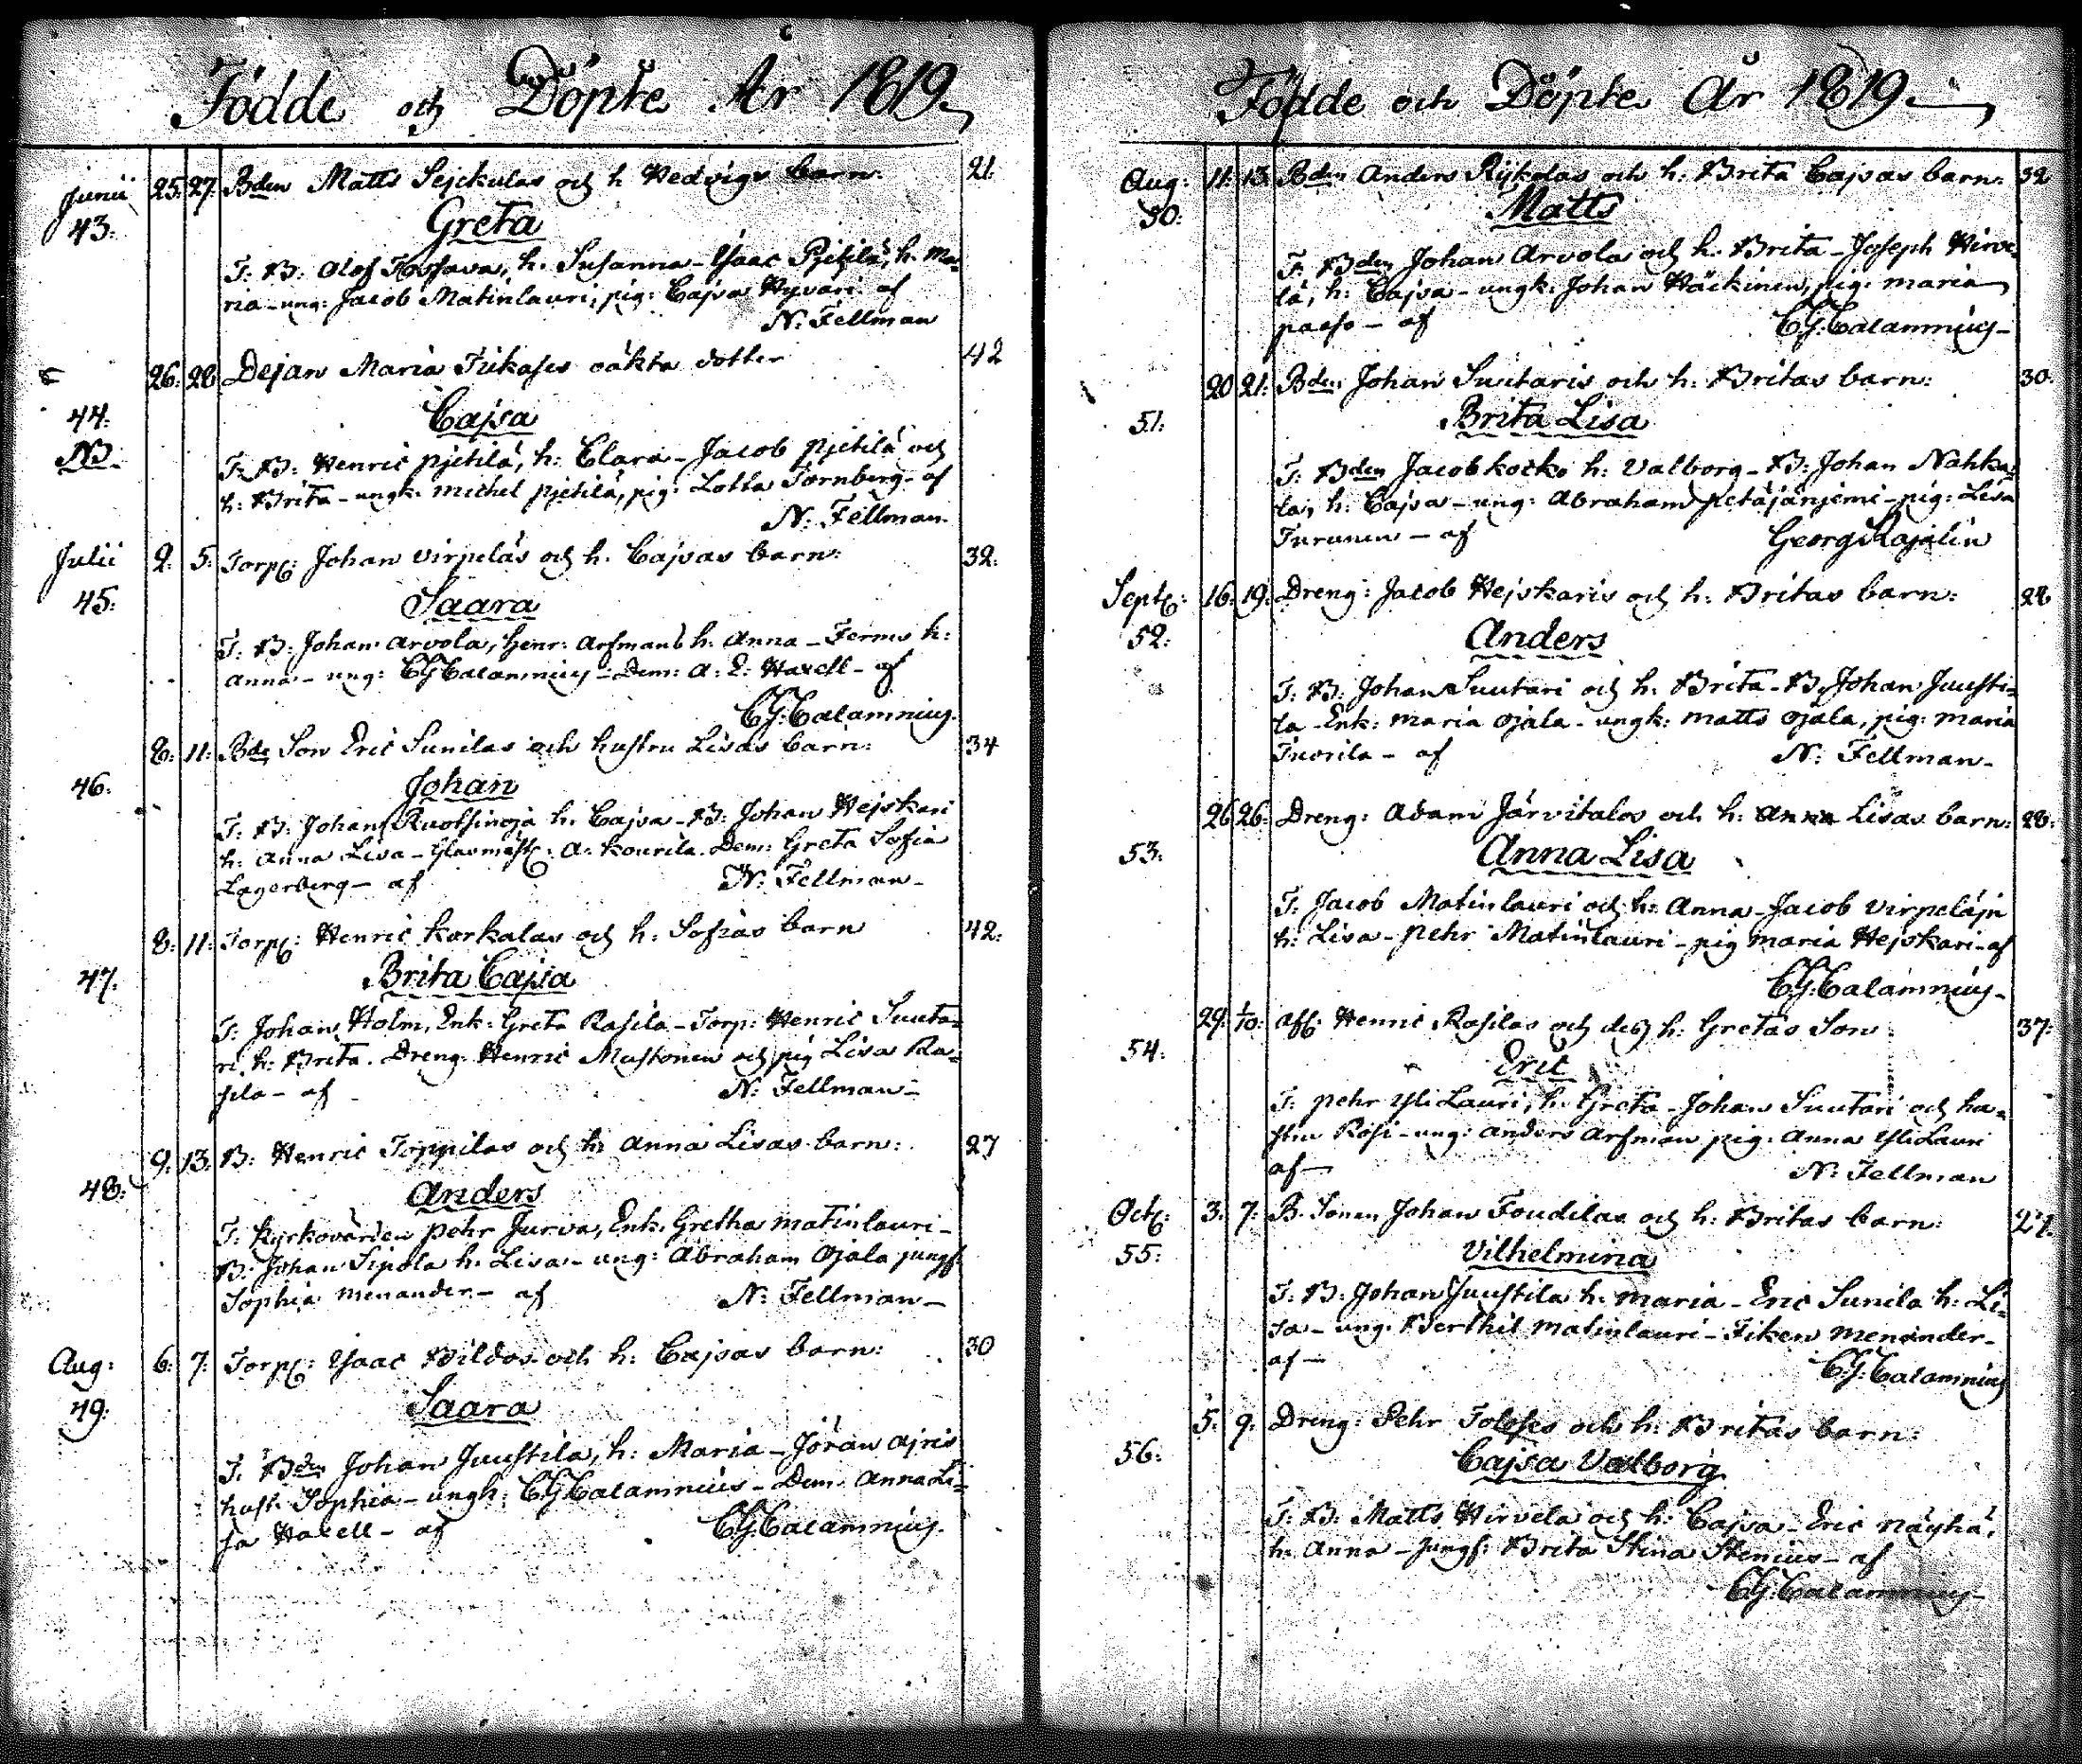 Födde och Döpte År 1819.
Junii 25. 27. Bden Matts Sejckulas och h. Hedvigs barn. 21.
43. Greta
F: B: Olof Kossava, h. Susanna - Isaac Pjetilä, h. Ma-
ria - ung: Jacob Matinlauri, pig: Cajsa Hyväri af
N: Fellman
26. 28 Pejan Maria Fikases oäkta dotter 42
44. Cajsa
NB. F: B: Henric Pjetilä, h: Clara - Jacob Pjetilä och
h: Brita - ungk: Michel Pjetilä, pig: Lotta Törnberg - af
N: Fellman.
Julii 2. 5. Torp: Johan Virpeläs och h. Cajsas barn: 32.
45. Saara
F: B: Johan Arvola, Henr: Arfmans h. Anna - Ferms h:
Anna - ung: CGCalamnius - Dem: A: L: Haxell - af
CG:Calamnius.
8: 11: Bde Son Eric Sunilas och hustru Lisas barn: 34
46. Johan
F: B: Johan Ruotsinoja h. Cajsa - B: Johan Hejskari
h: Anna Lisa - Glasmäst: A: Kourila - Dem: Greta Sofia
Lagerberg - af N: Fellman -
8: 11: Torp: Henric Korkalas och h: Sofias barn 42:
47. Brita Cajsa
F: Johan Holm, Enk: Greta Rasila - Torp: Henric Suuta-
ri, h: Brita. Dreng: Henric Mustonen och pig Lisa Ra-
sila - af N: Fellman -
9: 13: B: Henric Toppilas och h: Anna Lisas barn: 27
48: Anders
F: Kyrkovärden Pehr Jurva, Enk: Gretha Matinlauri -
B: Johan Sipola h. Lisa - ung: Abraham Ojala jungf:
Sophia Menander - af N: Fellman -
Aug: 6: 7: Torp: Isaac Kildos och h: Cajsas barn: 30
49: Saara
F: Bden Johan Juustila, h: Maria - Jöran Ajris
hust: Sophia - ungk: CGCalamnius - Dem: Anna Li-
sa Haxell - af CG:Calamnius.
Födde och Döpte År 1819.
Aug: 11: 13: Bden Anders Rijkolas och h: Brita Cajsas barn: 32
50: Matts
F: Bden Johan Arvola och h: Brita - Joseph Hirve-
lä, h: Cajsa - ungk: Johan Häckinen, pig: Maria
Paaso - af CG:Calamnius -
20 21: Bden Johan Suutaris och h: Britas barn: 30:
51: Brita Lisa
F: Bden Jacob Kocko h: Valborg - B: Johan Nahka-
la, h: Cajsa - ung: Abraham Petäjänjemi - pig: Lisa
Turunen - af Georg Rajalin
Sept: 16: 19: Dreng: Jacob Hejskaris och h: Britas barn: 28
52: Anders
F: B: Johan Suutari och h: Brita - B: Johan Juusti-
la - Enk: Maria Ojala - ungk: Matts Ojala, pig: Maria
Tuorila - af N: Fellman -
26 26: Dreng: Adam Järvitalos och h: Anna Lisas barn: 28:
53: Anna Lisa
F: Jacob Matinlauri och h: Anna - Jacob Virpeläjn
h: Lisa - Pehr Matinlauri - pig Maria Hejskari - af
CG:Calamnius -
29: 1/10: afsk: Henric Rasilas och dess h: Gretas Son 37:
54: Eric
F: Pehr YliLauri, h: Greta - Johan Suutari och hu-
stru Rosi - ung: Anders Arfman pig: Anna YliLauri
af - N: Fellman
Oct: 3: 7: B. Sonen Johan Foudilas och h: Britas barn: 27.
55: Vilhelmina
F: B: Johan Juustila h: Maria - Eric Sunila h: Li-
sa - ung: Berthil Matinlauri - Fiken Menander -
af - CG:Calamnius
5: 9: Dreng: Pehr Toloses och h: Britas barn:
56: Cajsa Valborg
F: B: Matts Hirvela och h: Cajsa - Eric Näyhä,
h: Anna - Jungf: Brita Stina Stenius - af
CG:Calamnius -